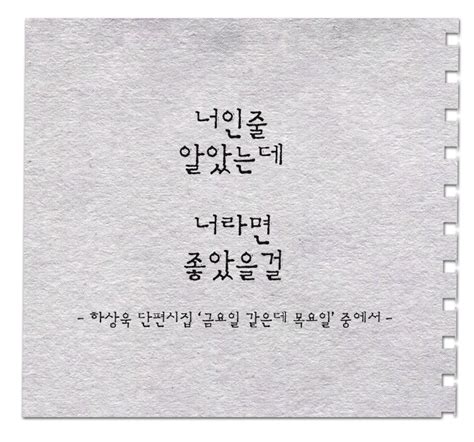 너인줄
알았는데
너라면
좋았을걸
- 하상욱 단편시집 '금요일 같은데 목요일' 중에서 -